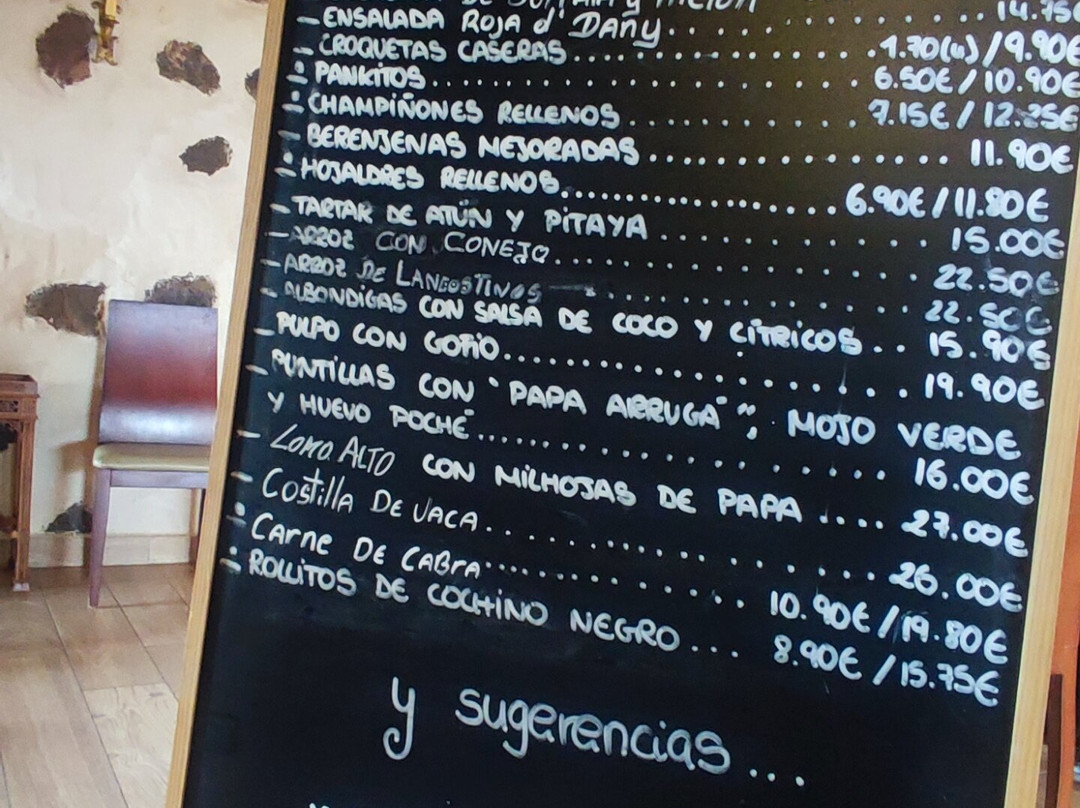 – ENSALADA ROJA d' DANY..... 14.75€
– CROQUETAS CASERAS.... 1.70(u)/9.90€
– PANKITOS.... 6.50€/10.90€
– CHAMPIÑONES RELLENOS.... 7.15€/12.25€
– BERENJENAS MEJORADAS.... 11.90€
– HOJALDRES RELLENOS.... 6.90€/11.80€
– TARTAR DE ATÚN Y PITAYA.... 15.00€
– ARROZ CON CONEJO.... 22.50€
– ARROZ DE LANGOSTINOS.... 22.50€
– ALBONDIGAS CON SALSA DE COCO Y CÍTRICOS.. 15.90€
– PULPO CON GOFIO.... 19.90€
– PUNTILLAS CON "PAPA ARRUGÁ", MOJO VERDE
Y HUEVO POCHÉ.... 16.00€
– Lomo ALTO CON MILHOJAS DE PAPA.... 27.00€
– Costilla De VACA.... 26.00€
– Carne DE CABra.... 10.90€/19.80€
– ROLLITOS DE COCHINO NEGRO... 8.90€/15.75€
y sugerencias...